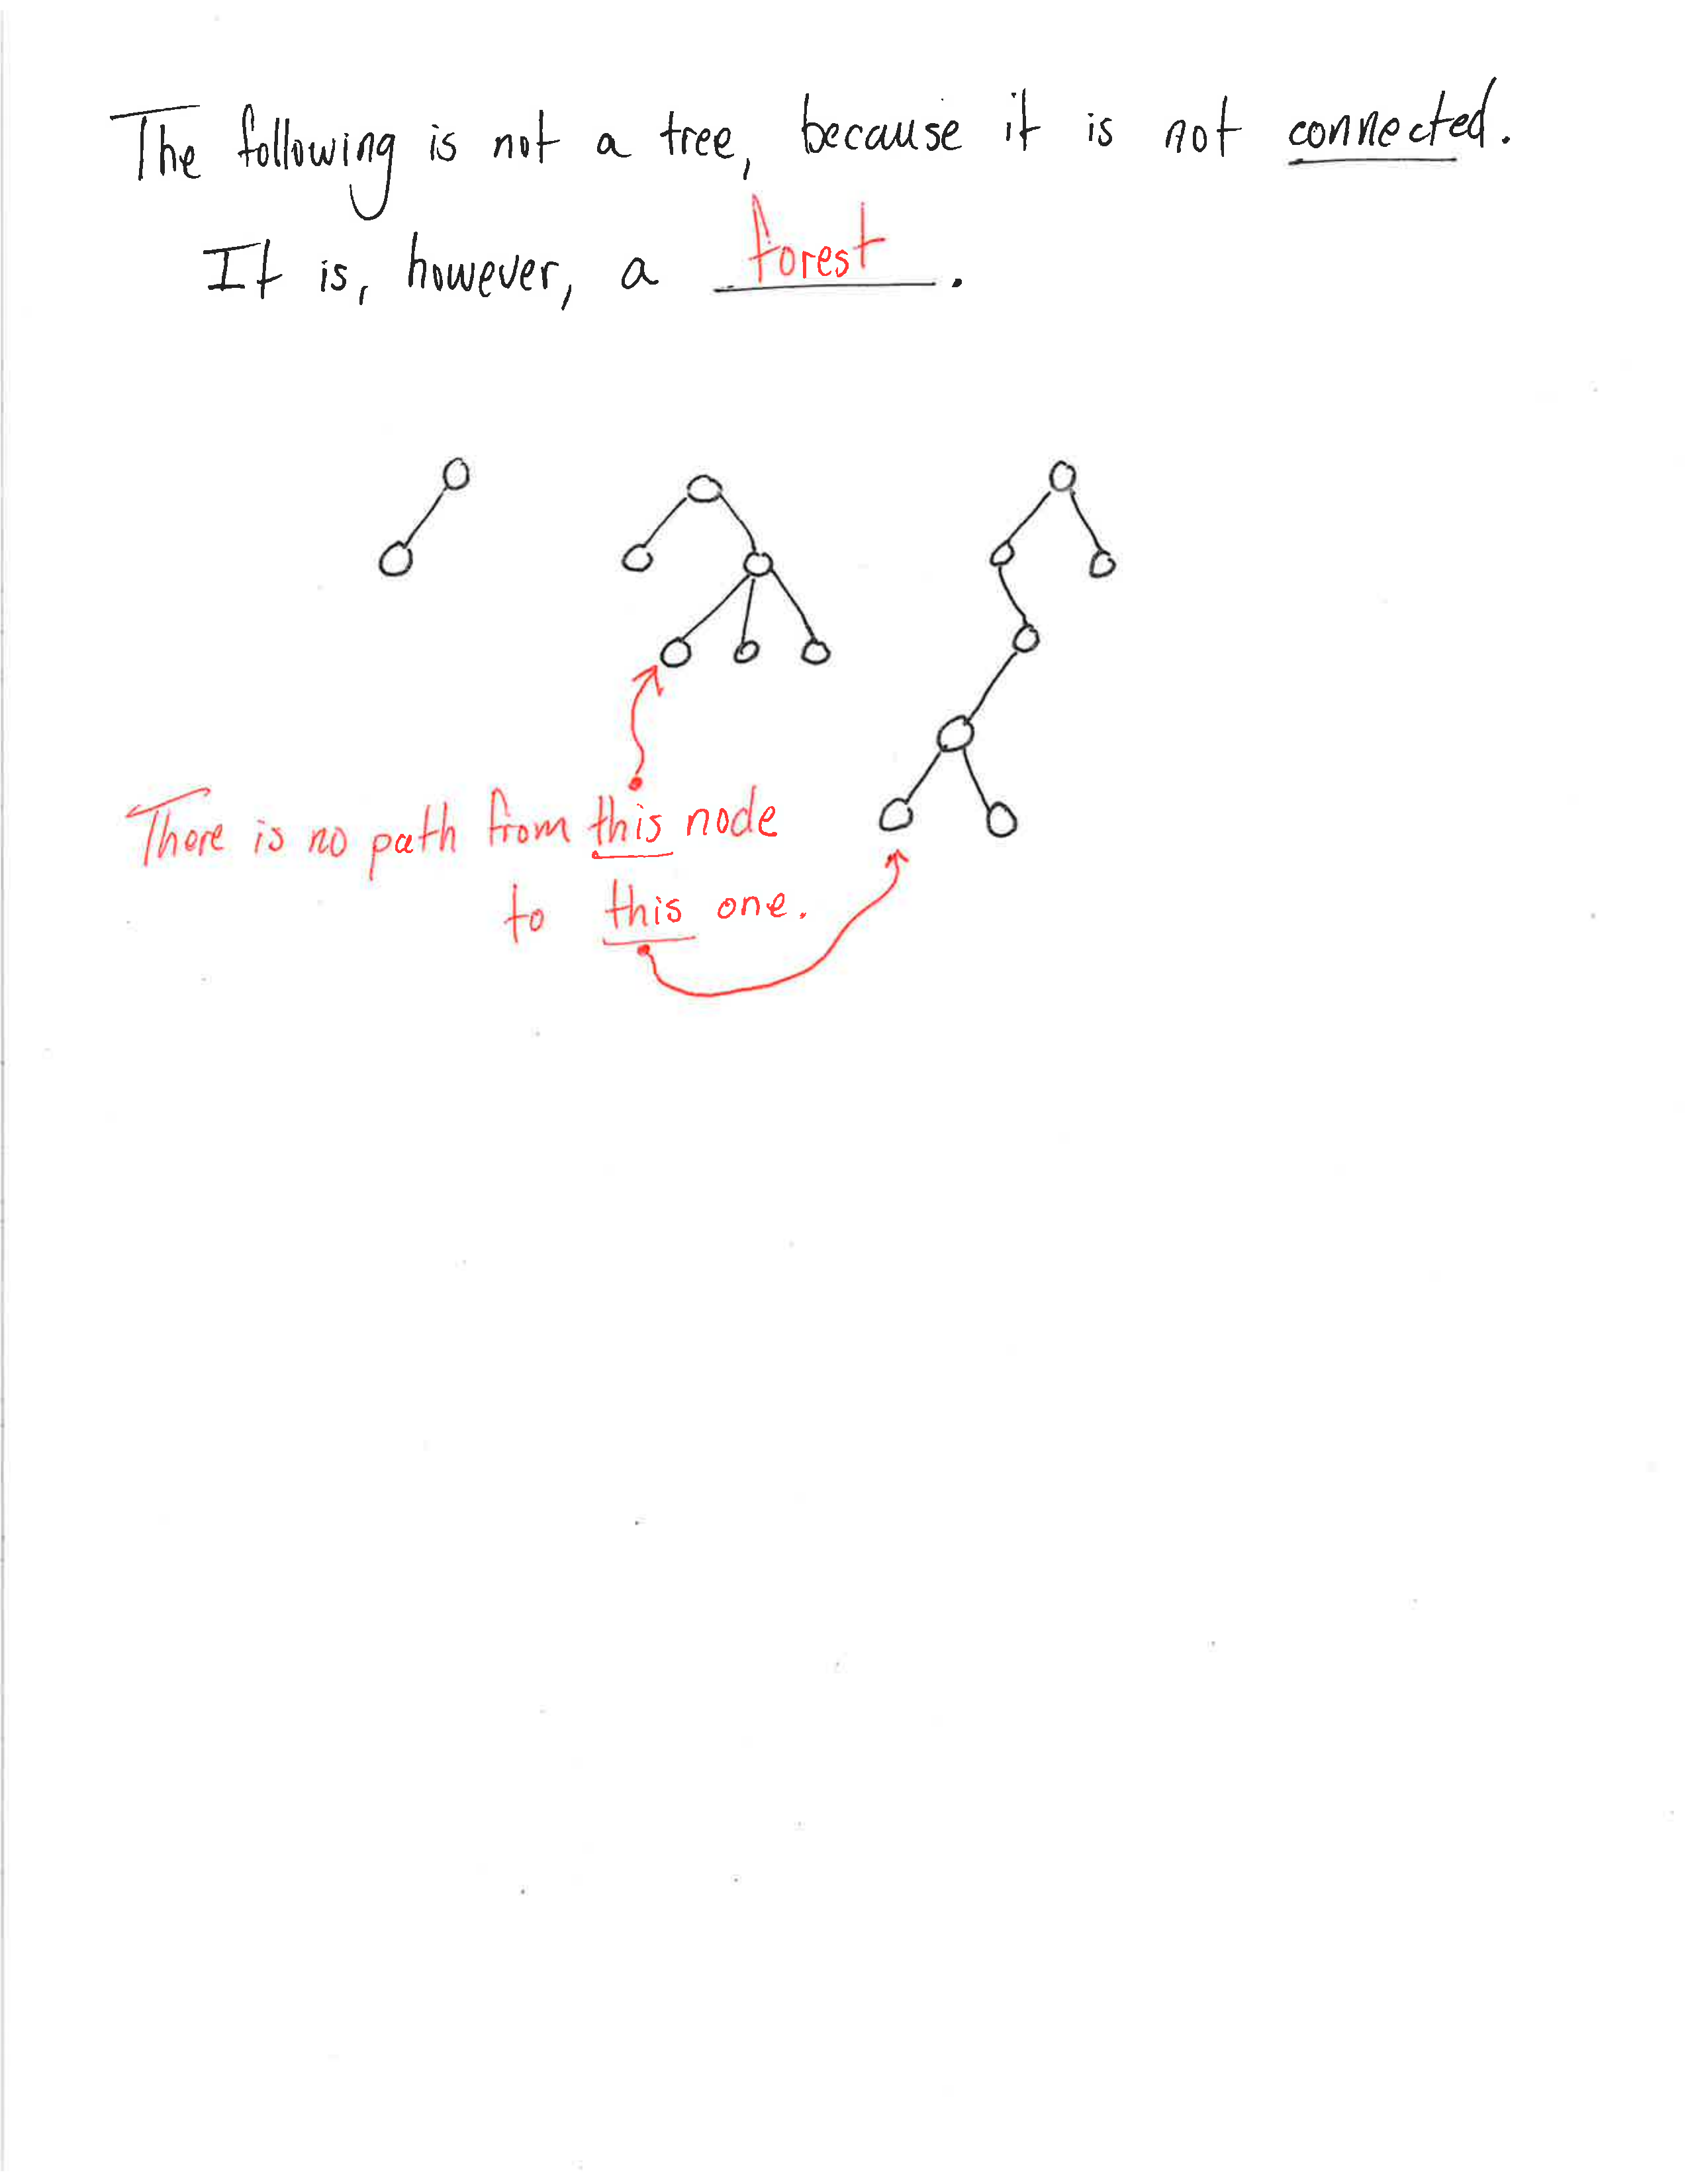 The following is not a tree, because it is not connected.
It is, however, a forest.
There is no path from this node
to this one.